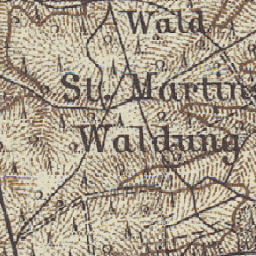 Wald
St. Martins
Waldung